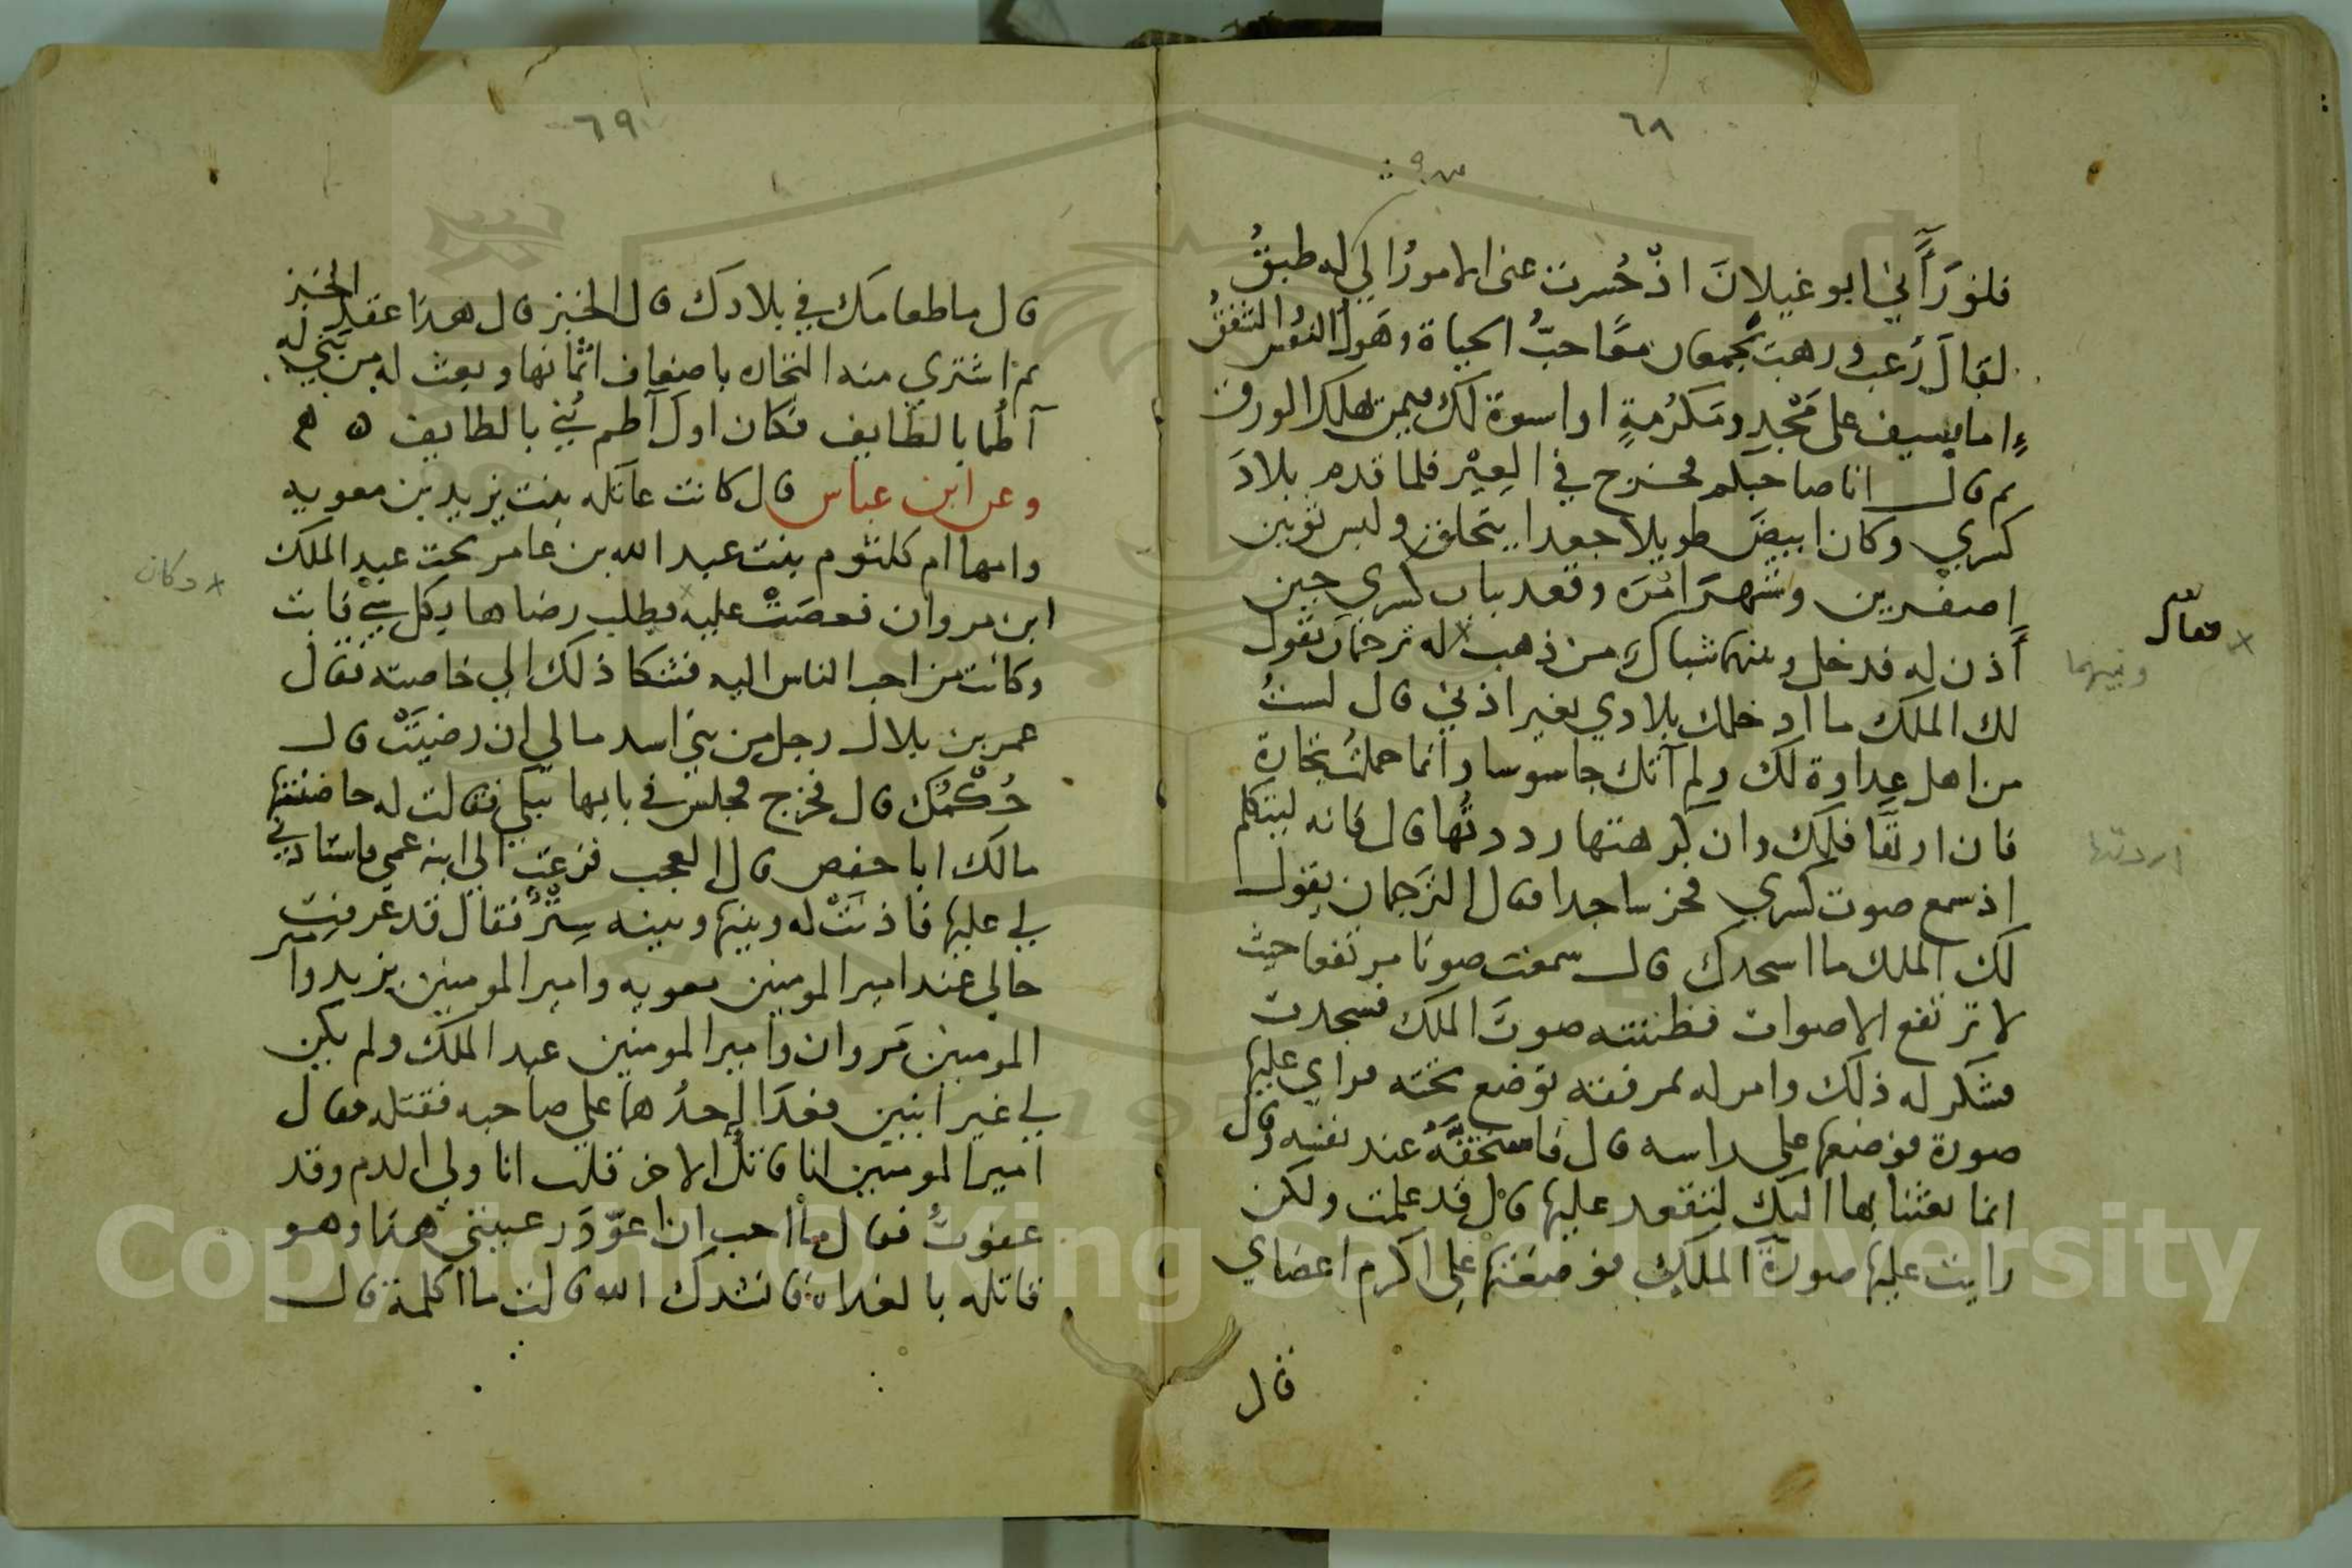 ٦٨
فلو رَآني ابو غيلانَ اذ حُسرت عني الامورُ الي له طبقُ
لقال رُعب ورهبٌ يُجمعان معًا حبُّ الحياة وهَولُ النفس الشفقُ
اما يسيف على مَجْدٍ ومَكرُمةٍ او اسوة لك فيمن تهلك الورق
ثم قال انا صاحبكم فخرج في العِيْر فلما قدم بلادَ
كسري وكان ابيضَ طويلا جعدا يتخلق ولبس ثوبين
اصفرين وشهر امره وقعد بباب كسري حين
أذن له فدخل وبينهم شباك من ذهب له ترجمان يقول
لك الملك ما ادخلك بلادي بغير اذني قال لستُ
من اهل عداوة لك ولم آتك جاسوسا وانما حملتُ تجارة
فان اردتها فلك وان كرهتها رددتُها قال فانه ليتكلم
اذ سمع صوت كسري فخر ساجدا فقال الترجمان يقول
لك الملك ما اسجدك قال سمعت صوتا مرتفعا حيث
لا ترتفع الاصوات فظننته صوتَ الملك فسجدت
فشكر له ذلك وامر له بمرفقة توضع تحته فراي عليها
صورة فوضعها على راسه قال فاستحقَّهُ عند نفسه وقال
انما بعثنا بها اليك لتقعد عليها قال قد علمت ولكن
رايت عليها صورةَ الملك فوضعتها على اكرم اعضاي
قال
فقال
وبينهما
اردتها
٦٩
قال ما طعامك في بلادك قال الخبز قال هذا عقل الخبز
ثم اشتري منه التجارة باضعاف اثمانها وبعث له من بني له
آطُما بالطايف فكان اول آطم بُني بالطايف ه م
وعن ابن عباس قال كانت عاتكه بنت يزيد بن معويه
وامها ام كلثوم بنت عبد الله بن عامر تحت عبد الملك
ابن مروان فغضبَتْ عليه فطلب رضاها بكل شي فابت
وكانت من احب الناس اليه فشكا ذلك الي خاصته فقال
عمر بن بلال رجل من بني اسد ما لي ان رضيَتْ قال
حُكْمُك قال فخرج فجلس في بابها يبكي فقالت له حاضنتها
مالك ابا حفص قال العجب فزعت الي ابنة عمي فاستاذني
لي عليها فاذنَتْ له وبينها وبينه سِتْرٌ فقال قد عرفتِ
حالي عند امير المومنين معويه وامير المومنين يزيد وامير
المومنين مَروان وامير المومنين عبد الملك ولم يكن
لي غير ابنين فعَدَا احدُهما علي صاحبه فقتله فقال
امير المومنين انا قاتلُ الاخر قلت انا ولي الدم وقد
عفوتُ فقال ما احب ان اعوّدَ رعيتني هذا وهو
قاتله بالغداة فانشدك الله قالت ما اكلمه قال
وكان